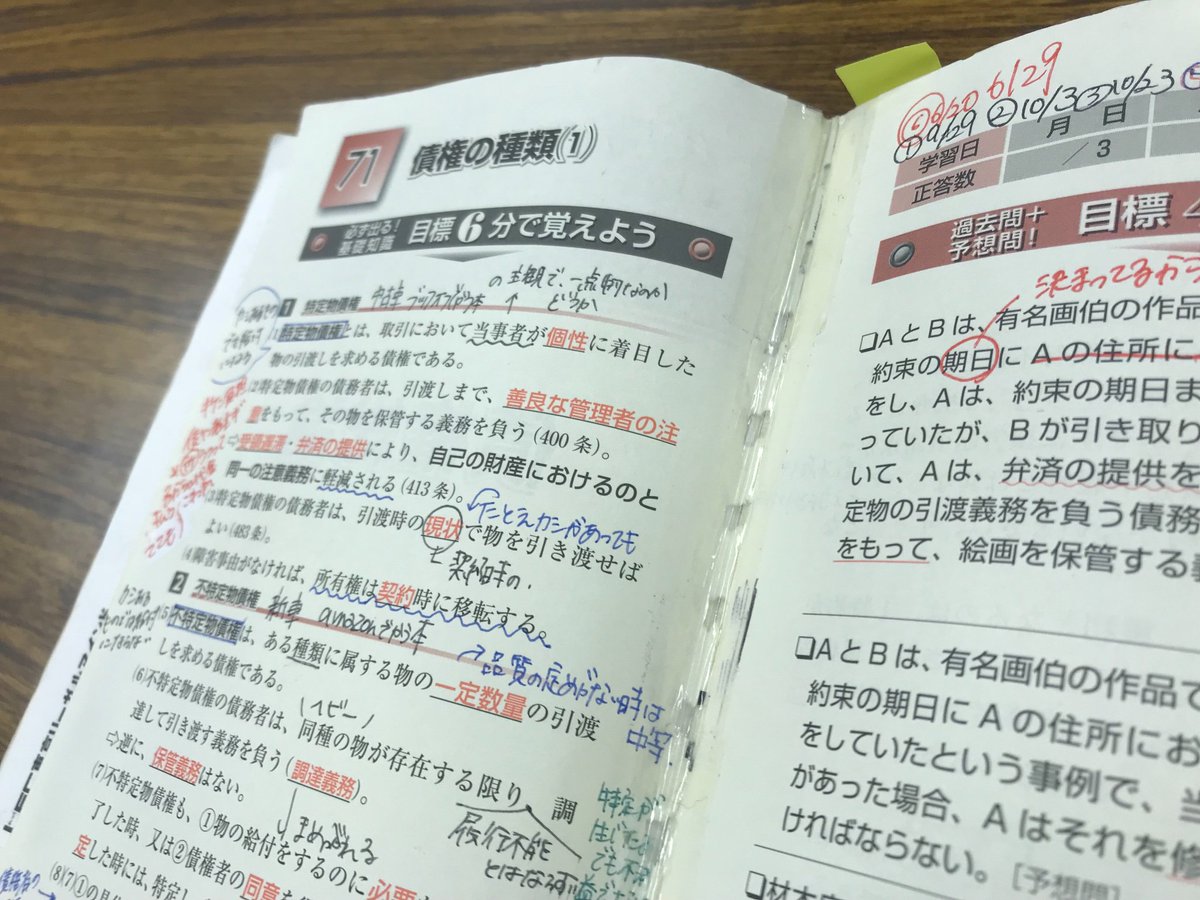 71 債権の種類(1)
必ず出る!
基礎知識
目標6分で覚えよう
の主観で、一点物なのか
どうか
1 特定物債権 中古車
(1)特定物債権とは、取引において当事者が個性に着目した
物の引渡しを求める債権である。
(2)特定物債権の債務者は、引渡しまで、善良な管理者の注
意をもって、その物を保管する義務を負う(400条)。
⇨受領遅滞・弁済の提供により、自己の財産におけるのと
同一の注意義務に軽減される(413条)。
たとえカシがあっても
(3)特定物債権の債務者は、引渡時の現状で物を引き渡せば
よい(483条)。
契約時の
(4)障害事由がなければ、所有権は契約時に移転する。
2 不特定物債権 新車 amazonで買う本
(5)不特定物債権は、ある種類に属する物の一定数量の引渡
しを求める債権である。
→品質の定めがない時は
中等
(6)不特定物債権の債務者は、同種の物が存在する限り、調
達して引き渡す義務を負う(調達義務)。
(ヘビー)
⇨逆に、保管義務はない。
まぬがれる
履行不能
とはならず
(7)不特定物債権も、①物の給付をするのに必要
了した時、又は②債権者の同意を
定した時には、特定し
(8)(7)①の具体
特定が
生じた
6/20 6/29
①9/29 ②10/3 ③10/23
学習日 月 日
正答数 /3
過去問+
予想問!
目標
決まってるから
❏AとBは、有名画伯の作品
約束の期日にAの住所に
をし、Aは、約束の期日ま
っていたが、Bが引き取り
いて、Aは、弁済の提供を
定物の引渡義務を負う債務
をもって、絵画を保管する義
❏AとBは、有名画伯の作品で
約束の期日にAの住所にお
をしていたという事例で、当
があった場合、Aはそれを修
ければならない。[予想問]
❏材木